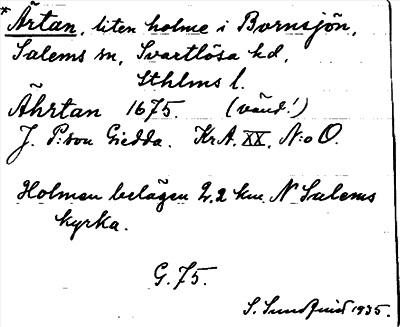 *Ärtan, liten holme i Bornsjön,
Salems sn, Svartlösa hd,
Sthlms l.
Ährtan 1675. (vänd!)
J. P:son Giedda. Kr.A. XX, N:o O.
Holmen belägen 2,2 km N Salems
kyrka.
G. 75.
S. Sundquist 1935.